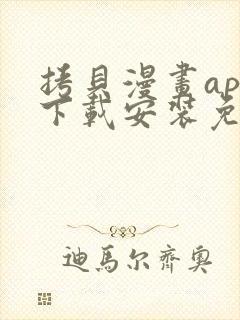 拷貝漫畫ap
下載安裝免
迪馬尔齊奧